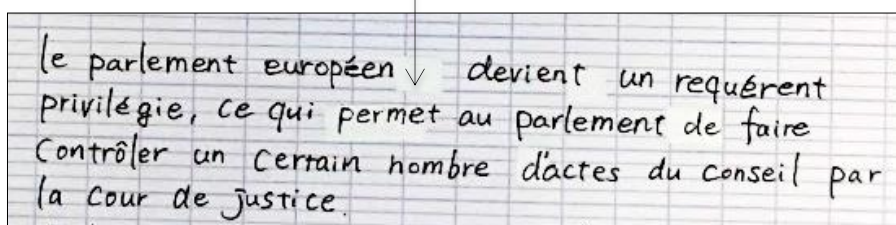 le parlement européen devient un requérent
privilégie, ce qui permet au parlement de faire
Contrôler un certain nombre d'actes du conseil par
la cour de justice.